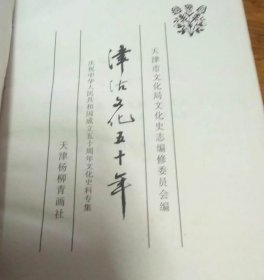 天津市文化局文化史志编修委员会编
津沽文化五十年
庆祝中华人民共和国成立五十周年文化史料专集
天津杨柳青画社